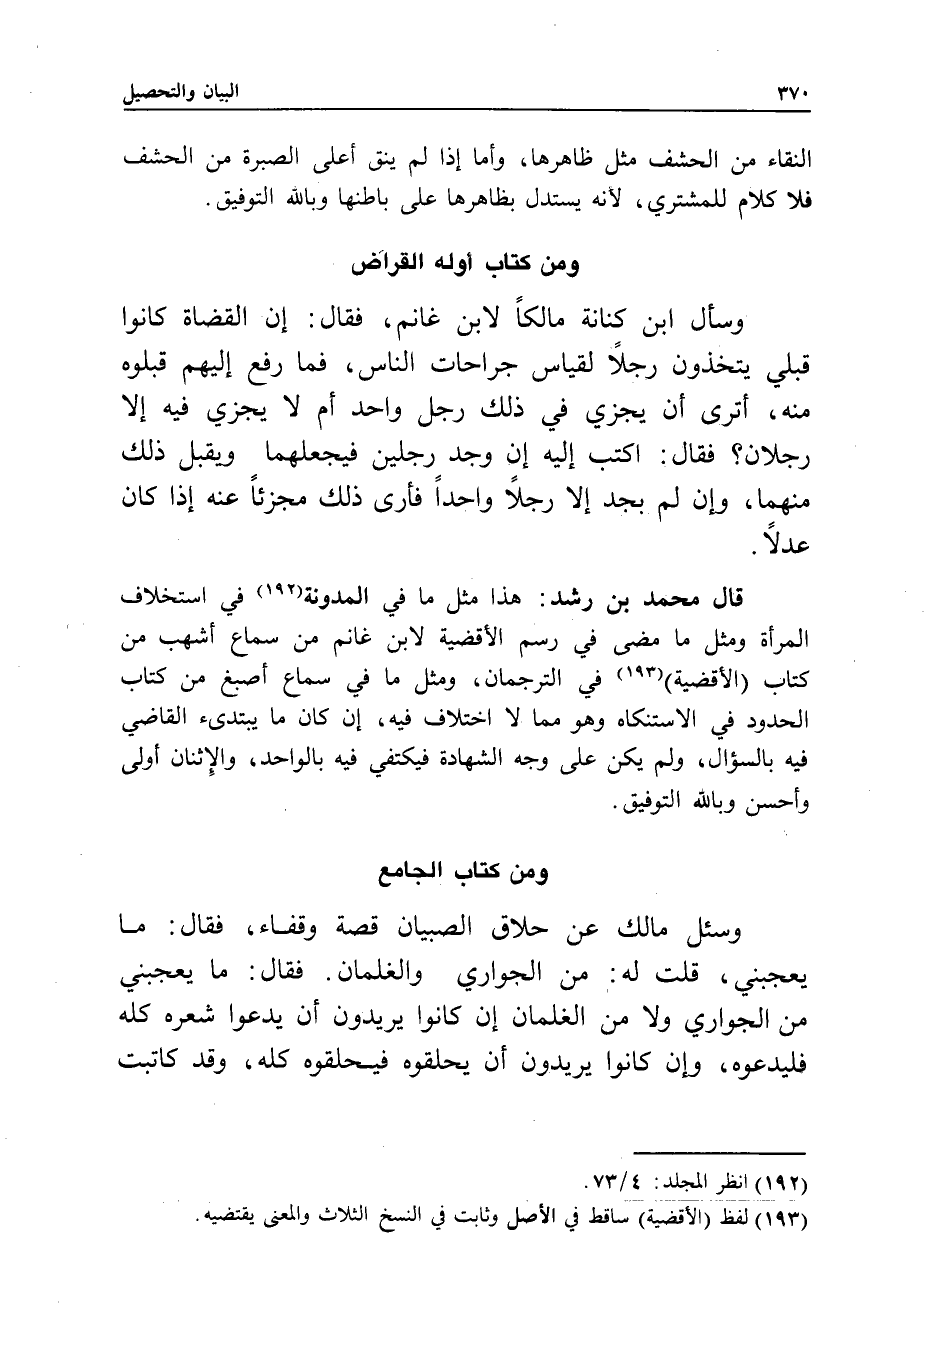 ٣٧٠
البيان والتحصيل
النقاء من الحشف مثل ظاهرها، وأما إذا لم ينق أعلى الصبرة من الحشف
فلا كلام للمشتري، لأنه يستدل بظاهرها على باطنها وبالله التوفيق.
ومن كتاب أوله القراض
وسأل ابن كنانة مالكاً لابن غانم، فقال: إن القضاة كانوا
قبلي يتخذون رجلاً لقياس جراحات الناس، فما رفع إليهم قبلوه
منه، أترى أن يجزي في ذلك رجل واحد أم لا يجزي فيه إلا
رجلان؟ فقال: اكتب إليه إن وجد رجلين فيجعلهما ويقبل ذلك
منهما، وإن لم يجد إلا رجلاً واحداً فأرى ذلك مجزئاً عنه إذا كان
عدلاً.
قال محمد بن رشد: هذا مثل ما في المدونة(١٩٢) في استخلاف
المرأة ومثل ما مضى في رسم الأقضية لابن غانم من سماع أشهب من
كتاب (الأقضية)(١٩٣) في الترجمان، ومثل ما في سماع أصبغ من كتاب
الحدود في الاستنكاه وهو مما لا اختلاف فيه، إن كان ما يبتدىء القاضي
فيه بالسؤال، ولم يكن على وجه الشهادة فيكتفي فيه بالواحد، والإثنان أولى
وأحسن وبالله التوفيق.
ومن كتاب الجامع
وسئل مالك عن حلاق الصبيان قصة وقفاء، فقال: ما
يعجبني، قلت له: من الجواري والغلمان. فقال: ما يعجبني
من الجواري ولا من الغلمان إن كانوا يريدون أن يدعوا شعره كله
فليدعوه، وإن كانوا يريدون أن يحلقوه فيحلقوه كله، وقد كاتبت
(١٩٢) انظر المجلد: ٧٣/٤.
(١٩٣) لفظ (الأقضية) ساقط في الأصل وثابت في النسخ الثلاث والمعنى يقتضيه.